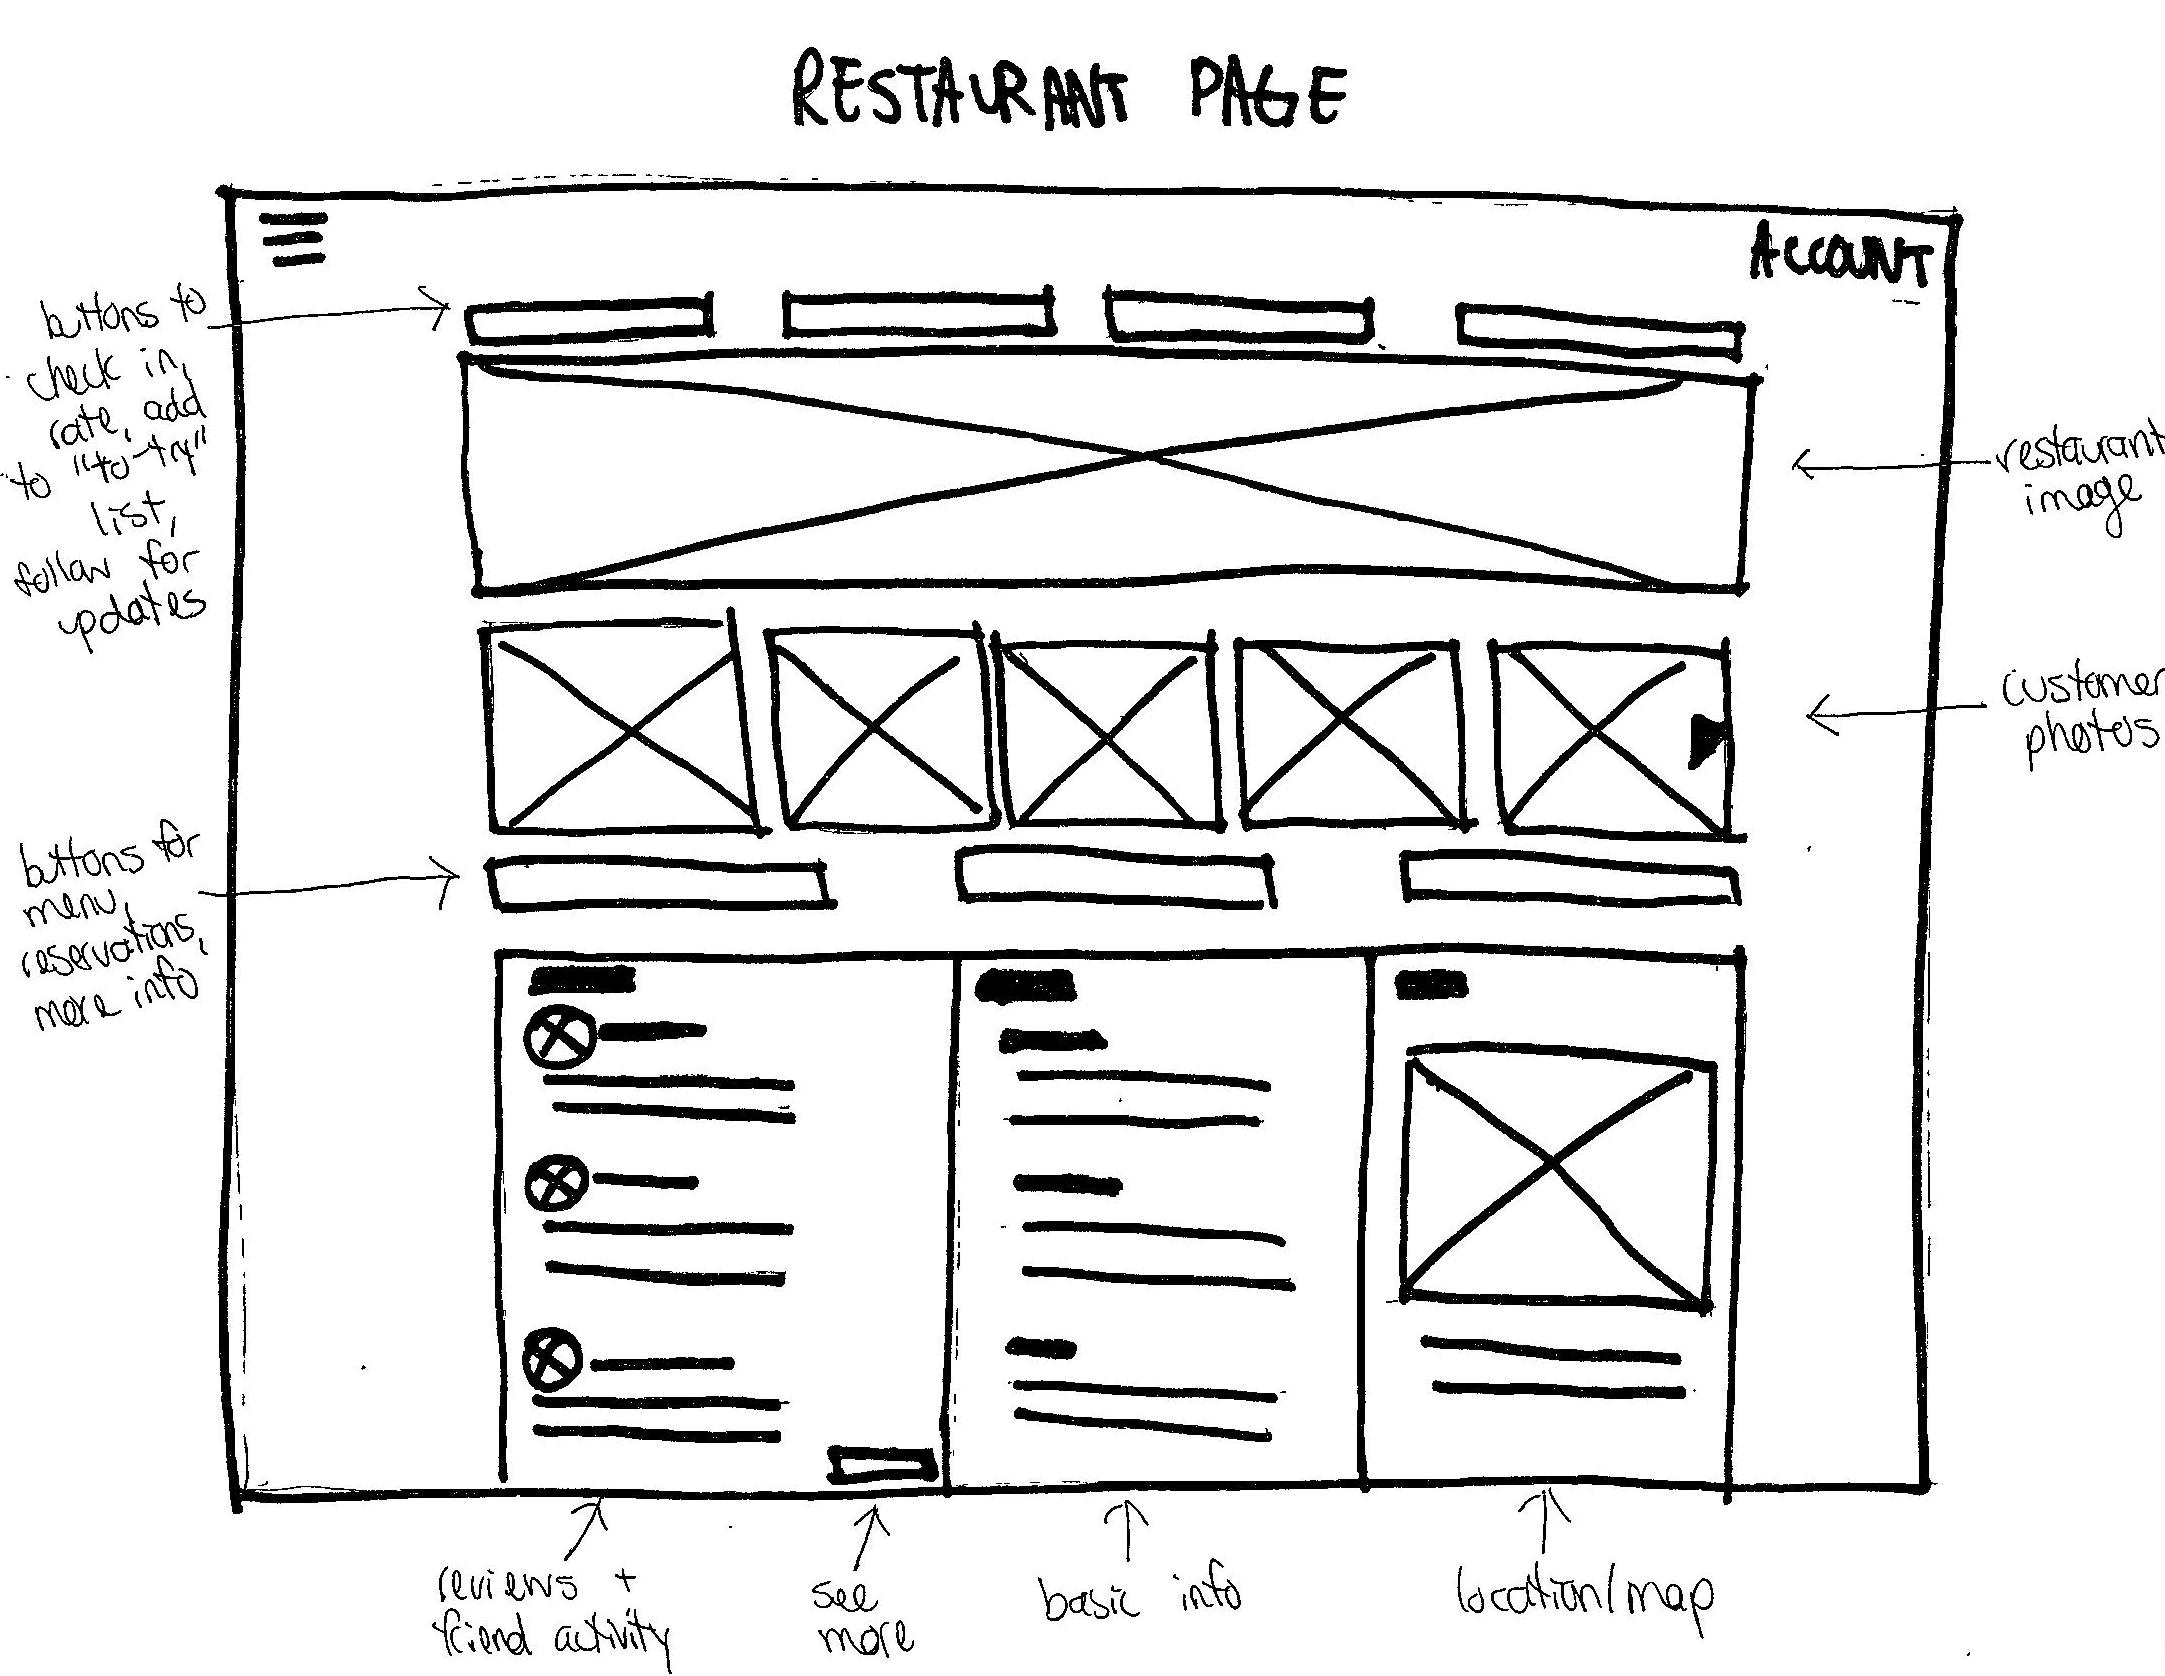 RESTAURANT PAGE
ACCOUNT
buttons to
check in,
rate, add
to "to-try"
list,
follow for
updates
restaurant
image
customer
photos
buttons for
menu,
reservations,
more info
reviews +
friend activity
see
more
basic info
location/map